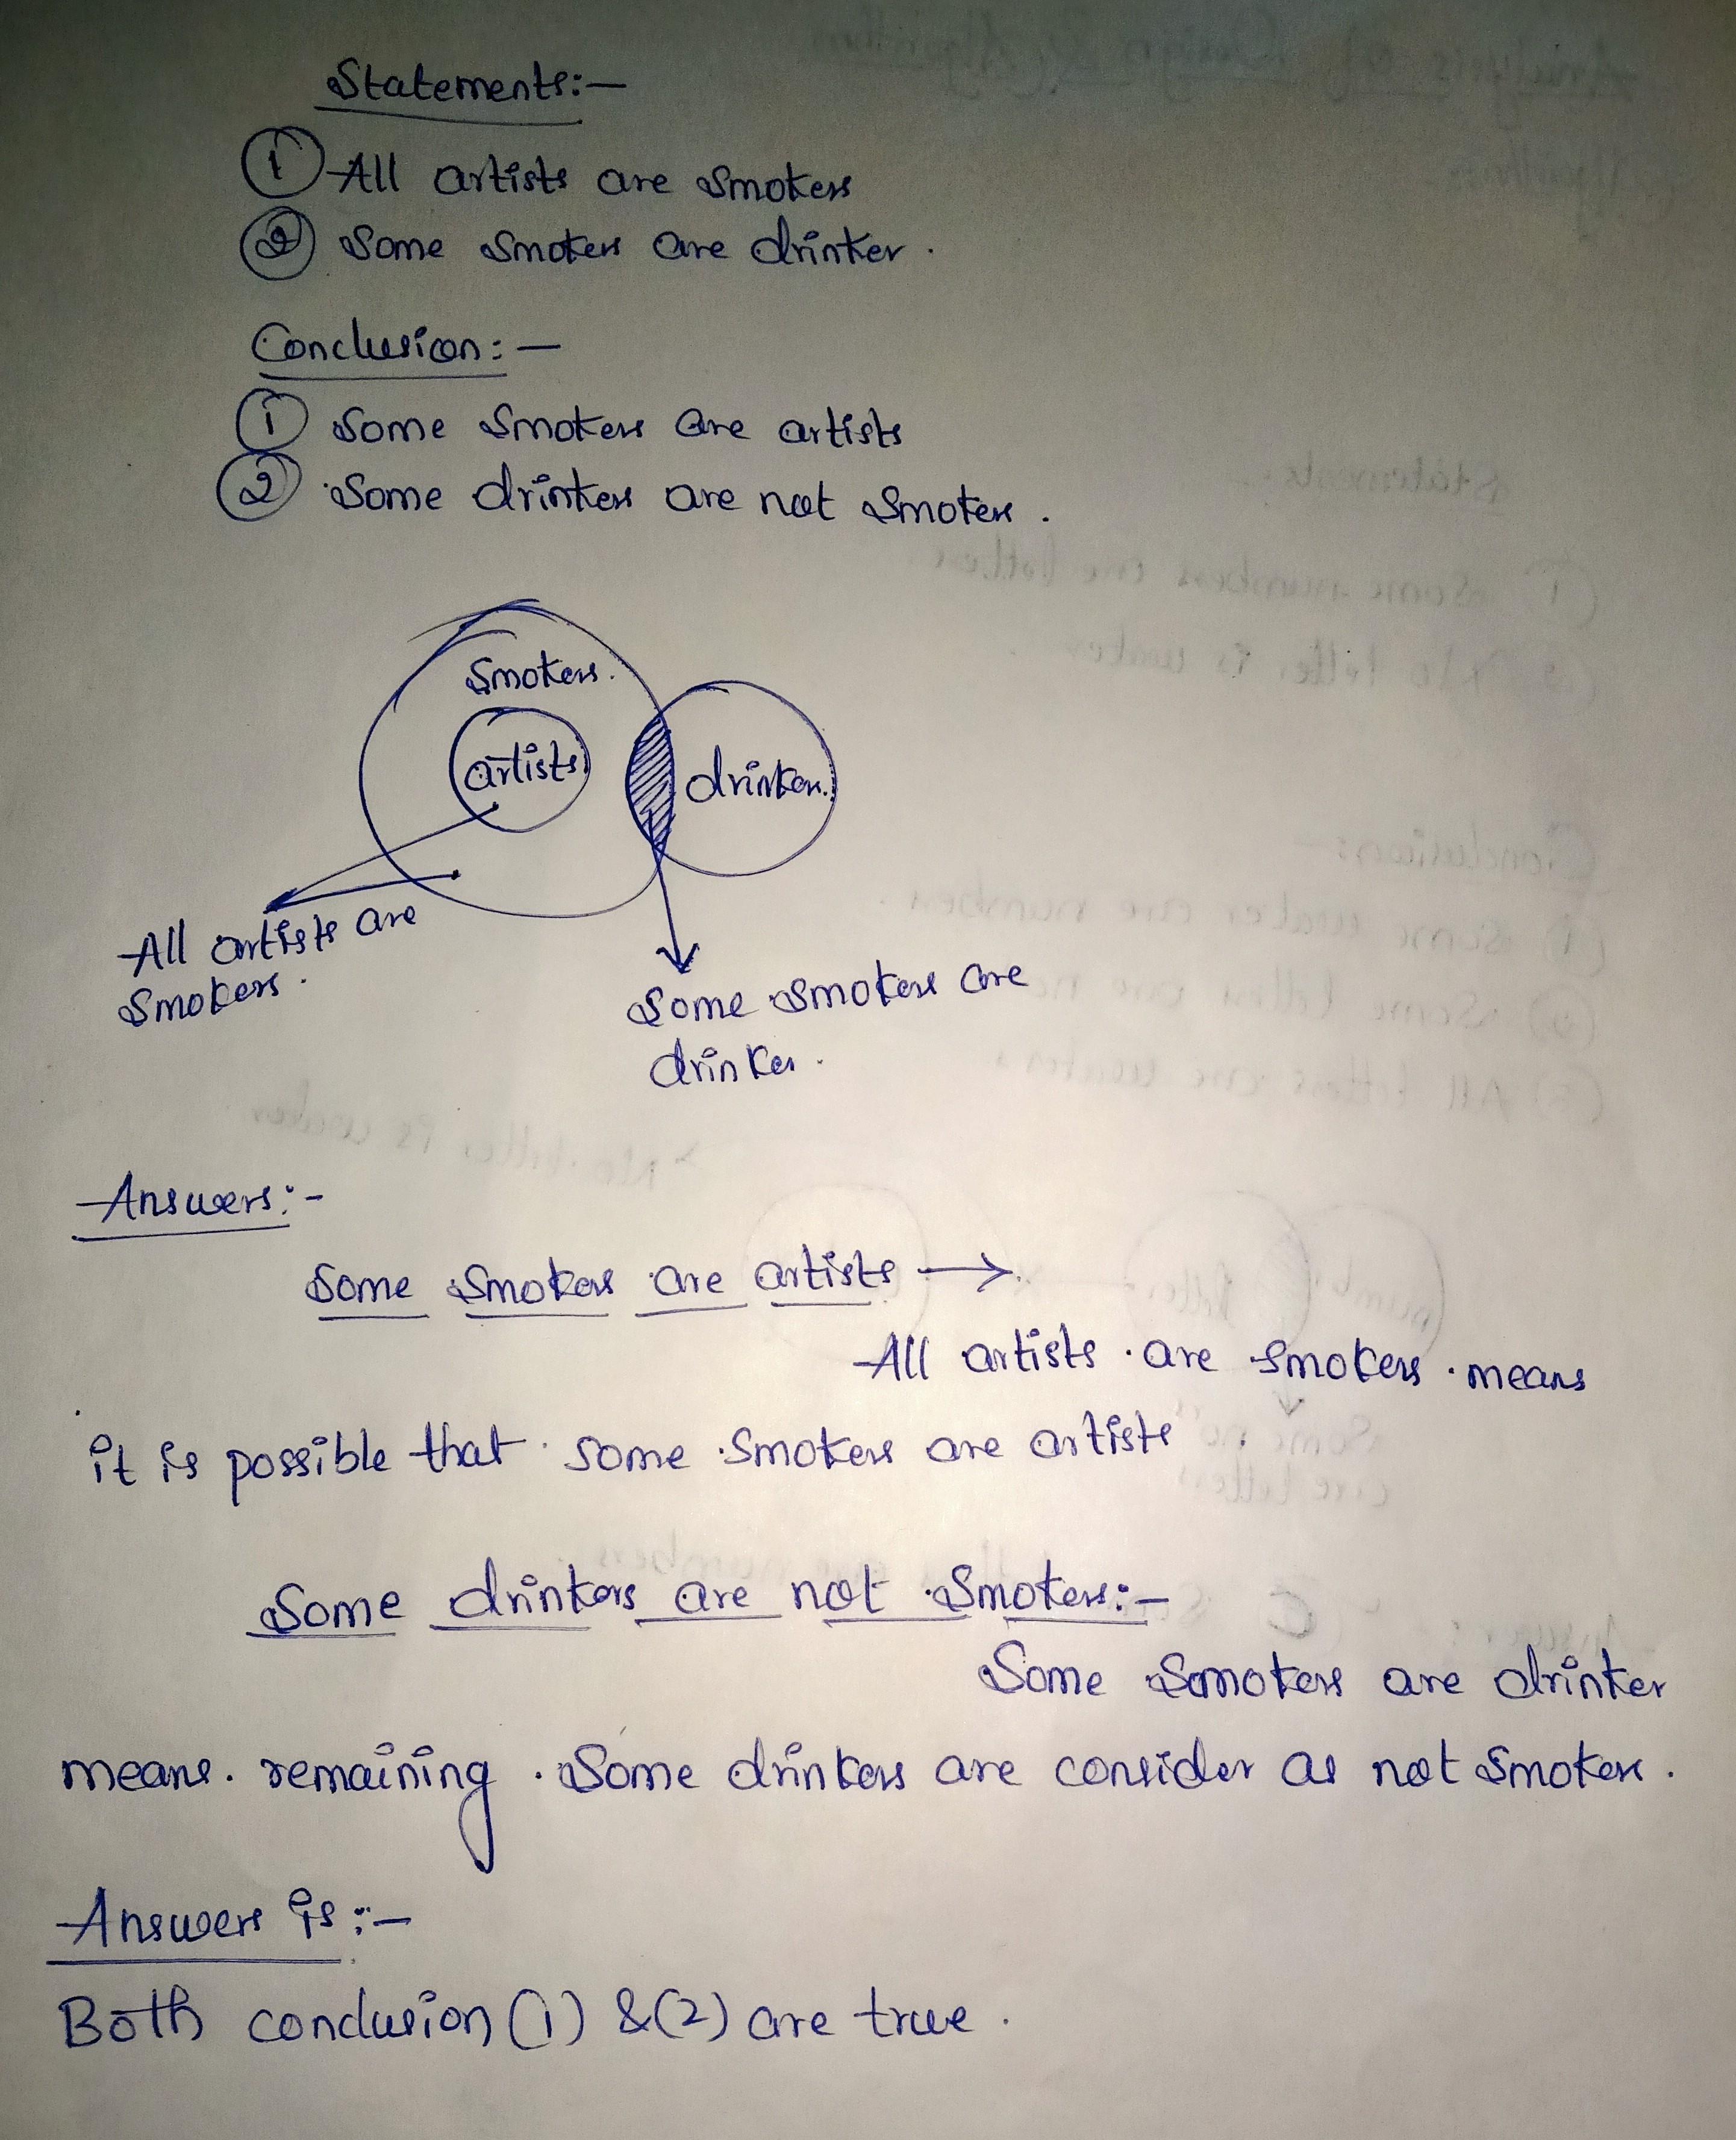 Statements:-
① All artists are smokers
② Some smokers are drinker.
Conclusion:-
① Some smokers are artists
② Some drinkers are not smokers.
Smokers.
artists
drinkers.
All artists are
smokers.
Some smokers are
drinker.
Answers:-
Some smokers are artists →
All artists are smokers means
it is possible that some smokers are artists
Some drinkers are not smokers:-
Some smokers are drinker
means remaining some drinkers are consider as not smokers.
Answers is:-
Both conclusion (1) & (2) are true.